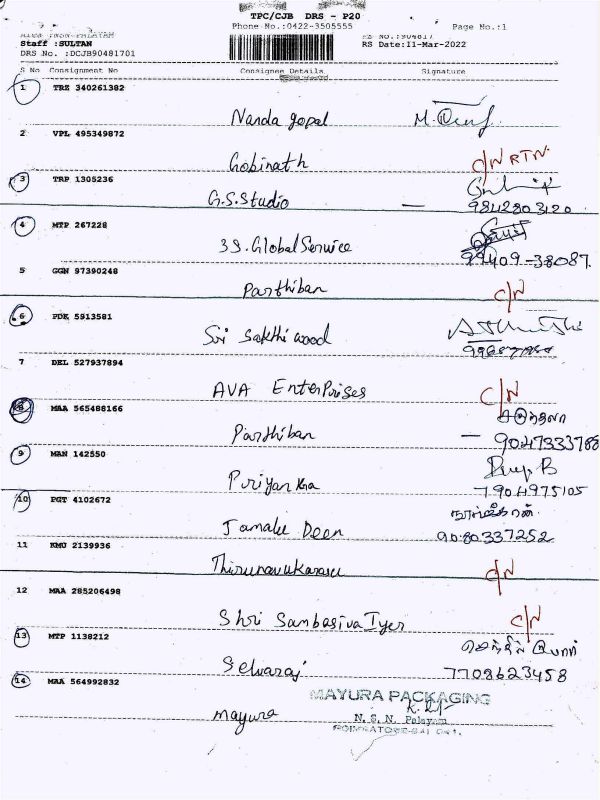 TPC/CJB DRS - P20
Phone No.:0422-3505555 Page No.:1
Staff :SULTAN
DRS No. :DCJB90481701 RS Date:11-Mar-2022
S No Consignment No Consignee Details Signature
1 TRZ 340261382
Nanda gopal
2 VPL 495349872
Gobinath C/N RTN.
3 TRP 1305236
G.S.Studio — 9842803120
4 MTP 267228
3S.Global Service 99409-38087.
5 GGN 97390248
Parthiban C/N
6 PDK 5913581
Sri Sakthi wood
7 DEL 527937894
AVA EnterPrises C/N
8 MAA 565488166
Parthiban — 9047333788
9 MAN 142550
Priyanka 7904975105
10 PGT 4102672
Jamalu Deen 9080337252
11 KMU 2139936
Thirunavukarasu C/N
12 MAA 285206498
Shri Sambasiva Iyer C/N
13 MTP 1138212
Selvaraj 7708623458
14 MAA 564992832
MAYURA PACKAGING
mayura N. S. N. Palayam